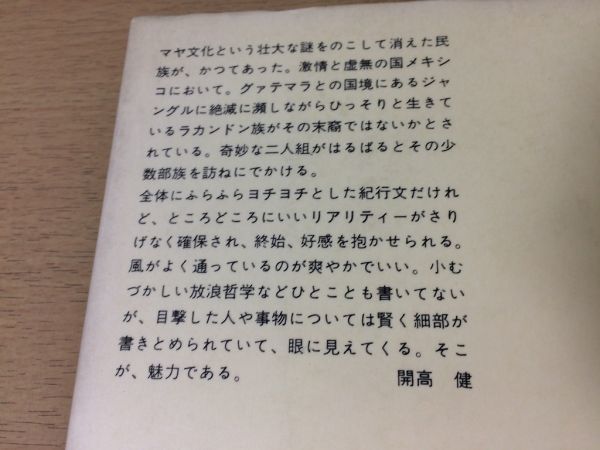 マヤ文化という壮大な謎をのこして消えた民
族が、かつてあった。激情と虚無の国メキシ
コにおいて。グァテマラとの国境にあるジャ
ングルに絶滅に瀕しながらひっそりと生きて
いるラカンドン族がその末裔ではないかとさ
れている。奇妙な二人組がはるばるとその少
数部族を訪ねにでかける。
全体にふらふらヨチヨチとした紀行文だけれ
ど、ところどころにいいリアリティーがさり
げなく確保され、終始、好感を抱かせられる。
風がよく通っているのが爽やかでいい。小む
づかしい放浪哲学などひとことも書いてない
が、目撃した人や事物については賢く細部が
書きとめられていて、眼に見えてくる。そこ
が、魅力である。 開高 健